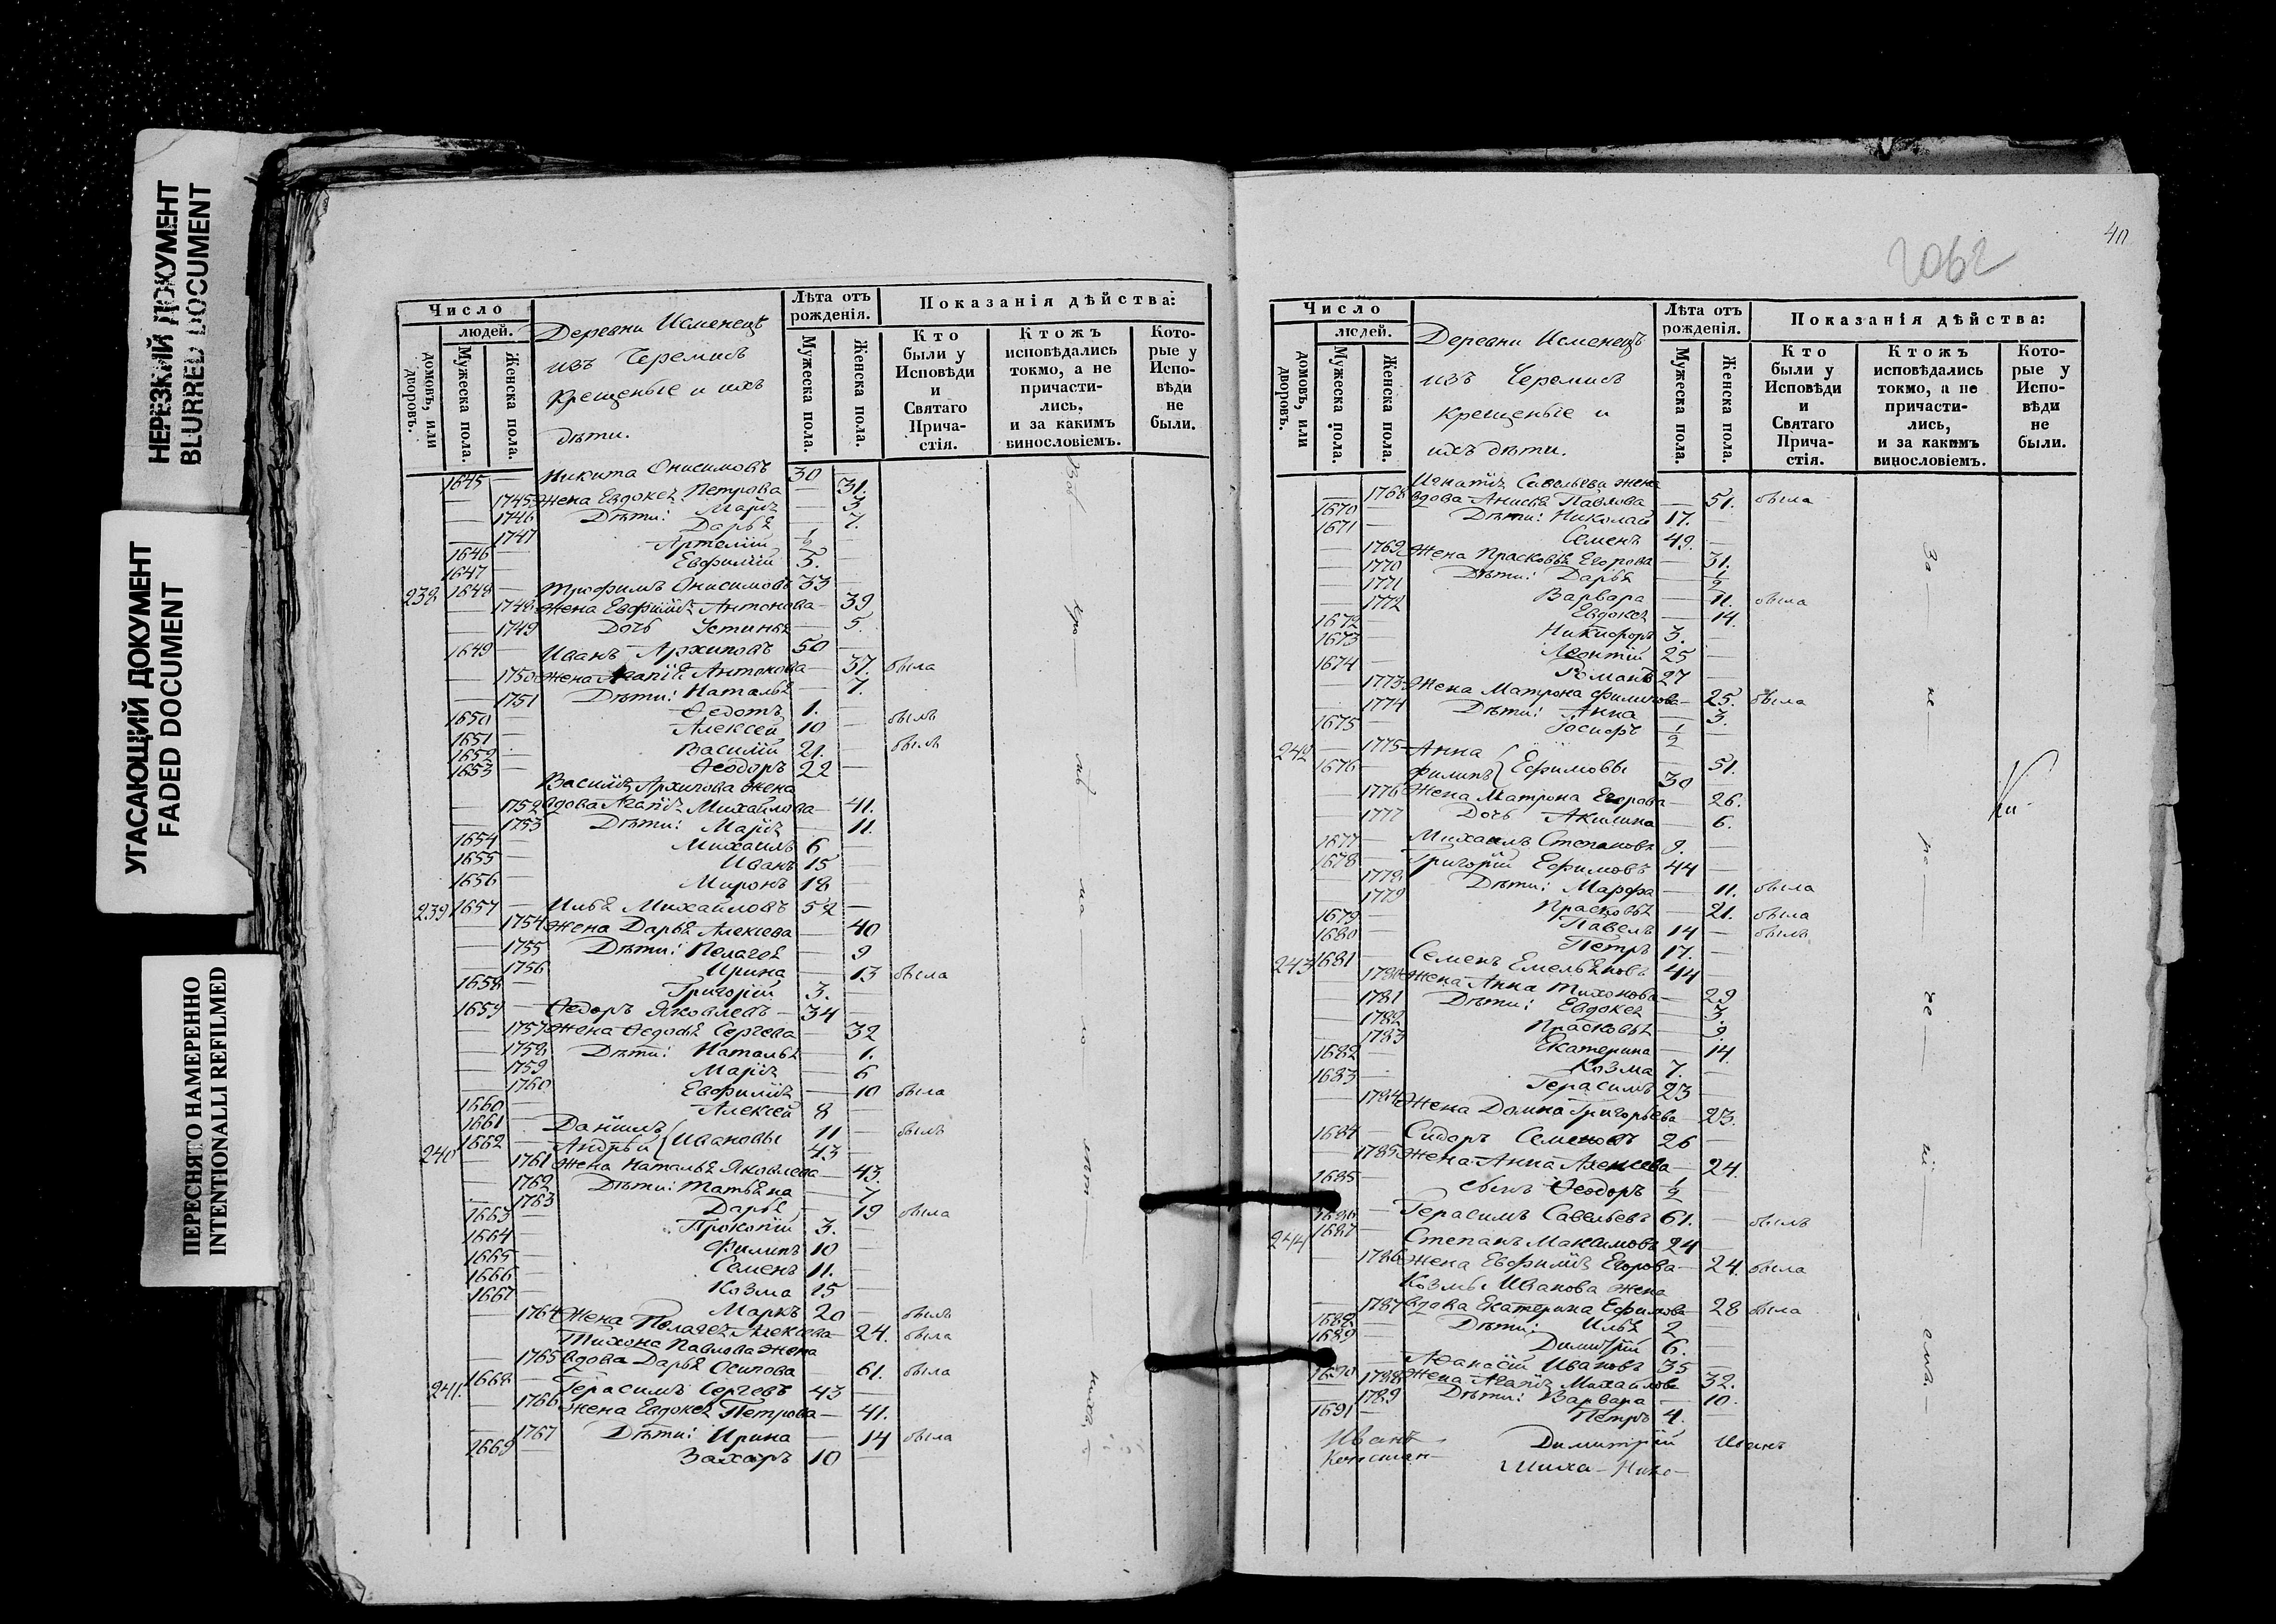 НЕРЕЗКИЙ ДОКУМЕНТ
BLURRED DOCUMENT
УГАСАЮЩИЙ ДОКУМЕНТ
FADED DOCUMENT
ПЕРЕСНЯТО НАМЕРЕННО
INTENTIONALLI REFILMED
Число
людей.
домовъ, или дворовъ.
Мужеска пола.
Женска пола.
Деревни Исменецъ
изъ Черемисъ
крещеные и ихъ
дѣти.
Лѣта отъ рожденія.
Мужеска пола.
Женска пола.
Показанія дѣйства:
Кто были у Исповѣди и Святаго Прича-стія.
Ктожъ исповѣдались токмо, а не причасти-лись, и за какимъ винословіемъ.
Кото-рые у Испо-вѣди не были.
1645 — Никита Онисимовъ 30 —
— 1745 Жена Евдокея Петрова — 31.
— 1746 Дѣти: Марія — 3
— 1747 Дарья — 7.
1646 — Артемій 1/2 —
1647 — Евфимій 5. —
238 1648 — Трофимъ Онисимовъ 33 —
— 1748 Жена Евфимія Антонова — 39
— 1749 Дочь Устинья — 5.
1649 — Иванъ Архиповъ 50 —
— 1750 Жена Агапія Антонова — 37. была
— 1751 Дѣти: Наталья — 7.
1650 — Ѳедотъ 1. —
1651 — Алексей 10 — былъ
1652 — Василій 21. — былъ
1653 — Ѳеодоръ 22 —
Василія Архипова жена
— 1752 вдова Агапія Михайлова — 41.
— 1753 Дѣти: Марія — 11.
1654 — Михаилъ 6 —
1655 — Иванъ 15 —
1656 — Миронъ 18 —
239 1657 — Илья Михайловъ 52 —
— 1754 Жена Дарья Алексева — 40
— 1755 Дѣти: Пелагея — 9
— 1756 Ирина — 13 была
1658 — Григорій 3. —
1659 — Ѳедоръ Яковлевъ — 34 —
— 1757 Жена Ѳедосья Сергеева — 32
— 1758 Дѣти: Наталья — 1.
— 1759 Марія — 6
— 1760 Евфимія — 10 была
1660 — Алексей 8 —
1661 — Даніилъ 11 — былъ
240 1662 — Андрей } Ивановы 43 —
— 1761 Жена Наталья Яковлева — 43.
— 1762 Дѣти: Татьяна — 7
— 1763 Дарья — 19 была
1663 — Прокопій 3. —
1664 — Филипъ 10 —
1665 — Семенъ 11. —
1666 — Козма 15 —
1667 Маркъ 20 — былъ
1764 Жена Пелагея Алексева — 24. была
Тихона Павлова жена
— 1765 вдова Дарья Осипова 61. была
241. 1668 — Герасимъ Сергеевъ 43 —
— 1766 Жена Евдокея Петрова — 41.
— 1767 Дѣти: Ирина — 14 была
2669 — Захаръ 10 —
2062
Число
людей.
домовъ, или дворовъ.
Мужеска пола.
Женска пола.
Деревни Исменецъ
изъ Черемисъ
крещеные и
ихъ дѣти.
Лѣта отъ рожденія.
Мужеска пола.
Женска пола.
Показанія дѣйства:
Кто были у Исповѣди и Святаго Прича-стія.
Ктожъ исповѣдались токмо, а не причасти-лись, и за какимъ винословіемъ.
Кото-рые у Испо-вѣди не были.
Игнатія Савельева жена
— 1768 вдова Анисья Павлова — 51. была
1670 — Дѣти: Николай 17. —
1671 — Семенъ 49. —
— 1769 Жена Прасковья Егорова — 31.
— 1770 Дѣти: Дарья — 1/2
— 1771 Варвара — 11. была
— 1772 Евдокея — 14.
1672 — Никифоръ 3. —
1673 — Леонтій 25 —
1674 — Романъ 27 —
1773 Жена Матрона Филипова — 25. была
1774 Дѣти: Анна — 3.
1675 — Іосифъ 1/2 —
242 — 1775 Анна — 51.
1676 — Филипъ } Ефимовы 30
— 1776 Жена Матрона Егорова — 26.
— 1777 Дочь Акилина — 6.
1677 — Михаилъ Степановъ 9. —
1678 — Григорій Ефимовъ 44 —
— 1778 Дѣти: Марфа — 11. была
— 1779 Прасковья — 21. была
1679 — Павелъ 14 — былъ
1680 — Петръ 17. —
243 1681 — Семенъ Емельяновъ 44 —
— 1780 Жена Анна Тихонова — 29
— 1781 Дѣти: Евдокея — 3.
— 1782 Прасковья — 9.
— 1783 Екатерина — 14.
1682 — Козма 7. —
1683 — Герасимъ 23 —
— 1784 Жена Домна Григорьева — 23.
1684 — Сидоръ Семеновъ 26 —
— 1785 Жена Анна Алексева — 24.
1685 — сынъ Ѳеодоръ 1/2 —
1686 — Герасимъ Савельевъ 61. — былъ
244 1687 — Степанъ Максимовъ 24 —
— 1786 Жена Евфимія Егорова — 24. была
Козмы Иванова жена
— 1787 вдова Екатерина Ефимова — 28 была
1688 — Дѣти: Илья 2 —
1689 — Димитрій 6. —
1690 — Афанасій Ивановъ 35 —
— 1788 Жена Агапія Михайлова 32.
— 1789 Дѣти: Варвара — 10.
1691 — Петръ 4. —
Иванъ Димитрій Иванъ
Констан-